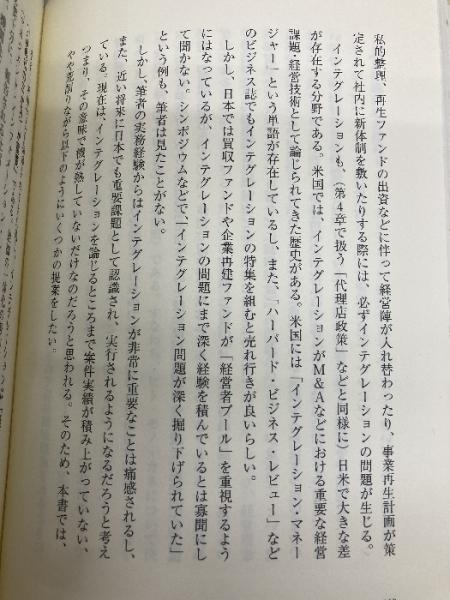 私的整理、再生ファンドの出資などに伴って経営陣が入れ替わったり、事業再生計画が策
定されて社内に新体制を敷いたりする際には、必ずインテグレーションの問題が生じる。
インテグレーションも、（第4章で扱う「代理店政策」などと同様に）日米で大きな差
が存在する分野である。米国では、インテグレーションがM&Aなどにおける重要な経営
課題、経営技術として論じられてきた歴史がある。米国には「インテグレーション・マネー
ジャー」という単語が存在しているし、また、「ハーバード・ビジネス・レビュー」など
のビジネス誌でもインテグレーションの特集を組むと売れ行きが良いらしい。
しかし、日本では買収ファンドや企業再建ファンドが「経営者プール」を重視するよう
にはなっているが、インテグレーションの問題にまで深く経験を積んでいるとは寡聞にし
て聞かない。シンポジウムなどで、「インテグレーション問題が深く掘り下げられていた」
という例も、筆者は見たことがない。
しかし、筆者の実務経験からはインテグレーションが非常に重要なことは痛感されるし、
また、近い将来に日本でも重要課題として認識され、実行されるようになるだろうと考え
ている。現在は、インテグレーションを論じるところまで案件実績が積み上がっていない、
つまり、その意味で機が熟していないだけなのだろうと思われる。そのため、本書では、
やや荒削りながら以下のようにいくつかの提案をしたい。